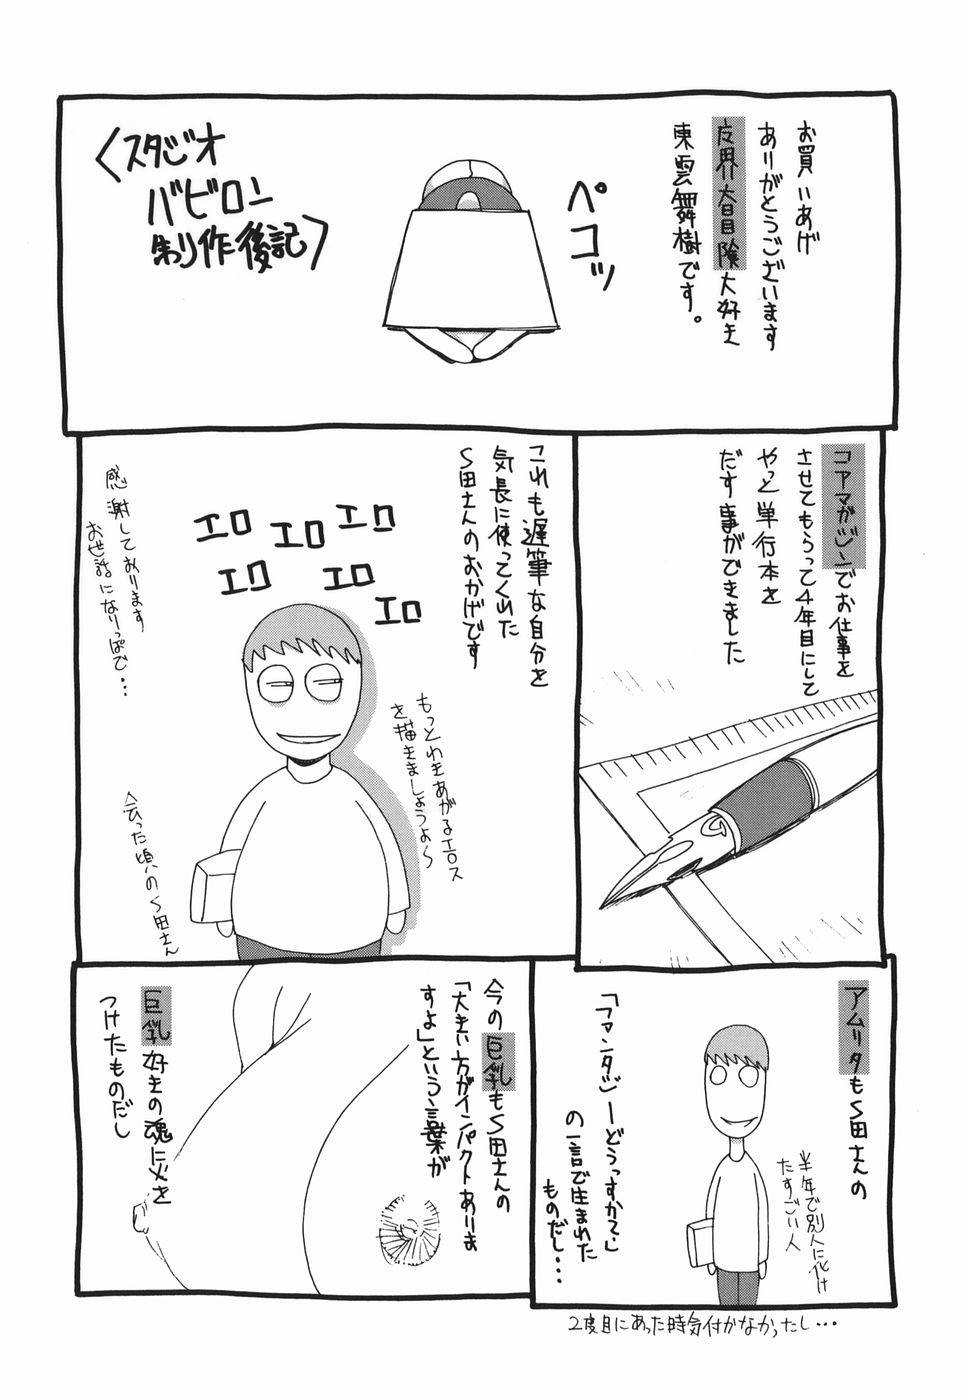 お買いあげ
ありがとうございます
皮界大冒険大好き
東雲舞樹です。
ペコッ
〈スタジオ
バビロン
制作後記〉
コアマガジンでお仕事を
させてもらって4年目にして
やっと単行本を
だす事ができました
これも遅筆な自分を
気長に使ってくれた
S田さんのおかげです
エロ
エロ
エロ
エロ
エロ
エロ
もっとわきあがるエロス
を描きましょうよ〜
感謝しております
お世話になりっぱで…
△会った頃のS田さん
アムリタもS田さんの
「ファンタジーどうっすかて」
の一言で生まれた
ものだし…
半年で別人に化け
たすごい人
2度目にあった時気付かなかったし…
今の巨乳もS田さんの
「大きい方がインパクトありま
すよ」という言葉が
巨乳好きの魂に火を
つけたものだし